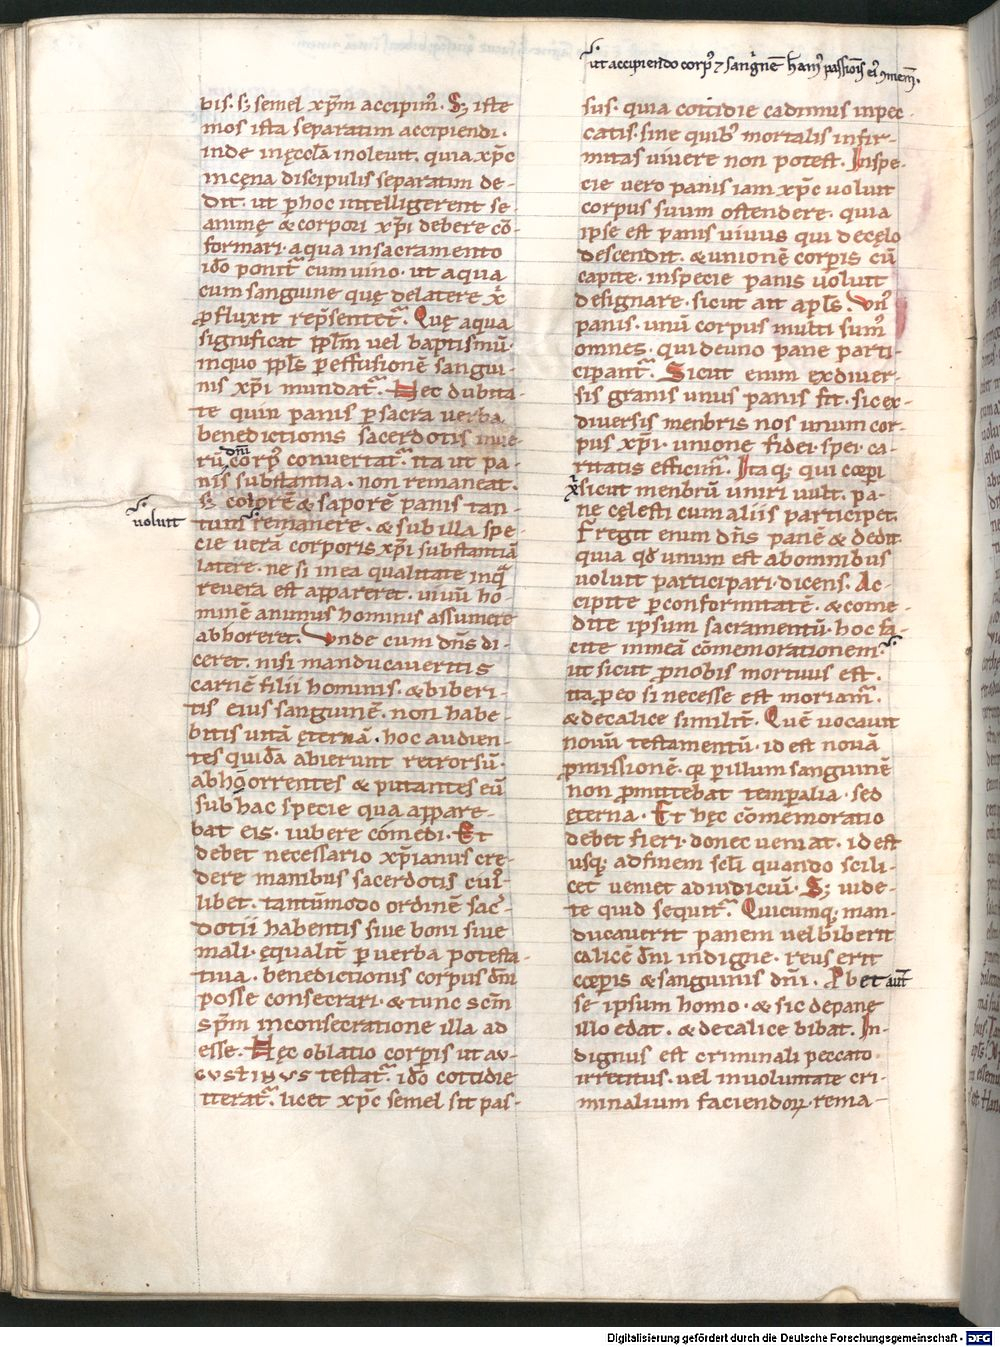 ut accipiendo corp᷒ ⁊ sanguinē hām᷒ passiōis ei᷒ ꝯmem̄.
bis. s; semel xp̄m accipim᷒. S; iste
mos ista separatim accipiendi.
inde in ęccl̄a inoleuit. quia xp̄c
in cęna discipulis separatim de-
dit. ut ꝑ hoc intelligerent se
animę & corpori xp̄i debere cō-
formari. aqua in sacramento
iđo ponit᷑ cum uino. ut aqua
cum sanguine quę de latere xp̄i
ꝓfluxit rep̄sentet᷑. Quę aqua
significat pp̄lm uel baptismū.
in quo pp̄ls ꝑ effusionē sangui-
nis xp̄i mundat᷑. Nec dubita-
te quin panis ꝑ sacra uerba
benedictionis sacerdotis in ue-
rū dn̄i corp᷒ conuertat᷑. ita ut pa-
nis substantia. non remaneat.
s; colorē & saporē panis tan-
uoluit
tum remanere. & sub illa spe-
cie uerā corporis xp̄i substantiā
latere. ne si in ea qualitate in q̄
reuera est appareret. uiuū ho-
minē animus hominis assumere
abhorreret. Vnde cum dn̄s di-
ceret. nisi manducaueritis
carnē filii hominis. & biberi-
tis eius sanguinē. non habe-
bitis uitā ęternā. hoc audien-
tes quidā abierunt retrorsū.
abhorrentes & putantes eū
sub hac specie qua appare-
bat eis. iubere comedi. Et
debet necessario xp̄ianus cre-
dere manibus sacerdotis cui᷒-
libet. tantūmodo ordinē sac̄-
dotii habentis siue boni siue
mali. ęqualit̄ ꝑ uerba potesta-
tiua. benedictionis corpus dn̄i
posse consecrari. & tunc sc̄m
sp̄m in consecratione illa ad
esse. Hęc oblatio corꝑis ut au-
gustinus testat᷑. iđo cottidie
iterat᷑. licet xp̄c semel sit pas-
sus. quia cottidie cadimus in pec-
catis. sine quib᷒ mortalis infir-
mitas uiuere non potest. In spe-
cie uero panis iam xp̄c uoluit
corpus suum ostendere. quia
ipse est panis uiuus qui de cęlo
descendit. & unionē corꝑis cū
capite. in specie panis uoluit
designare. sicut ait apl̄s. Vn᷒
panis. unū corpus multi sum᷒
omnes. qui de uno pane parti-
cipant᷑. Sicut enim ex diuer-
sis granis unus panis fit. sic ex
diuersis menbris nos unum cor-
pus xp̄i. unione fidei. spei. ca-
ritatis efficim᷑. Ita q; qui corpi
xp̄i sicut menbrū uniri uult. pa-
ne cęlesti cum aliis participet.
Fregit enim dn̄s panē & dedit.
quia qđ unum est ab omnibus
uoluit participari. dicens. Ac-
cipite ꝑ conformitatē. & come-
dite ipsum sacramentū. hoc fa-
cite in meā cōmemorationem.
ut sicut ꝓ nobis mortuus est.
ita ꝓ eo si necesse est moriam᷑.
& de calice similit̄. Quē uocauit
nouū testamentū. id est nouā
ꝓmissionē. q̄ ꝑ illum sanguinē
non ꝓmittebat temꝑalia. sed
ęterna. Et hęc cōmemoratio
debet fieri. donec ueniat. id est
usq; ad finem scl̄i quando scili-
cet ueniet ad iudiciū. S; uide-
te quid sequit᷑. Quicumq; man-
ducauerit panem uel biberit
calicē dn̄i indigne. reus erit
corꝑis & sanguinis dn̄i. Pbet aut̄
se ipsum homo. & sic de pane
illo edat. & de calice bibat. In-
dignus est criminali peccato
irretitus. uel in uoluntate cri-
minalium faciendoꝝ. rema-
Digitalisierung gefördert durch die Deutsche Forschungsgemeinschaft - DFG